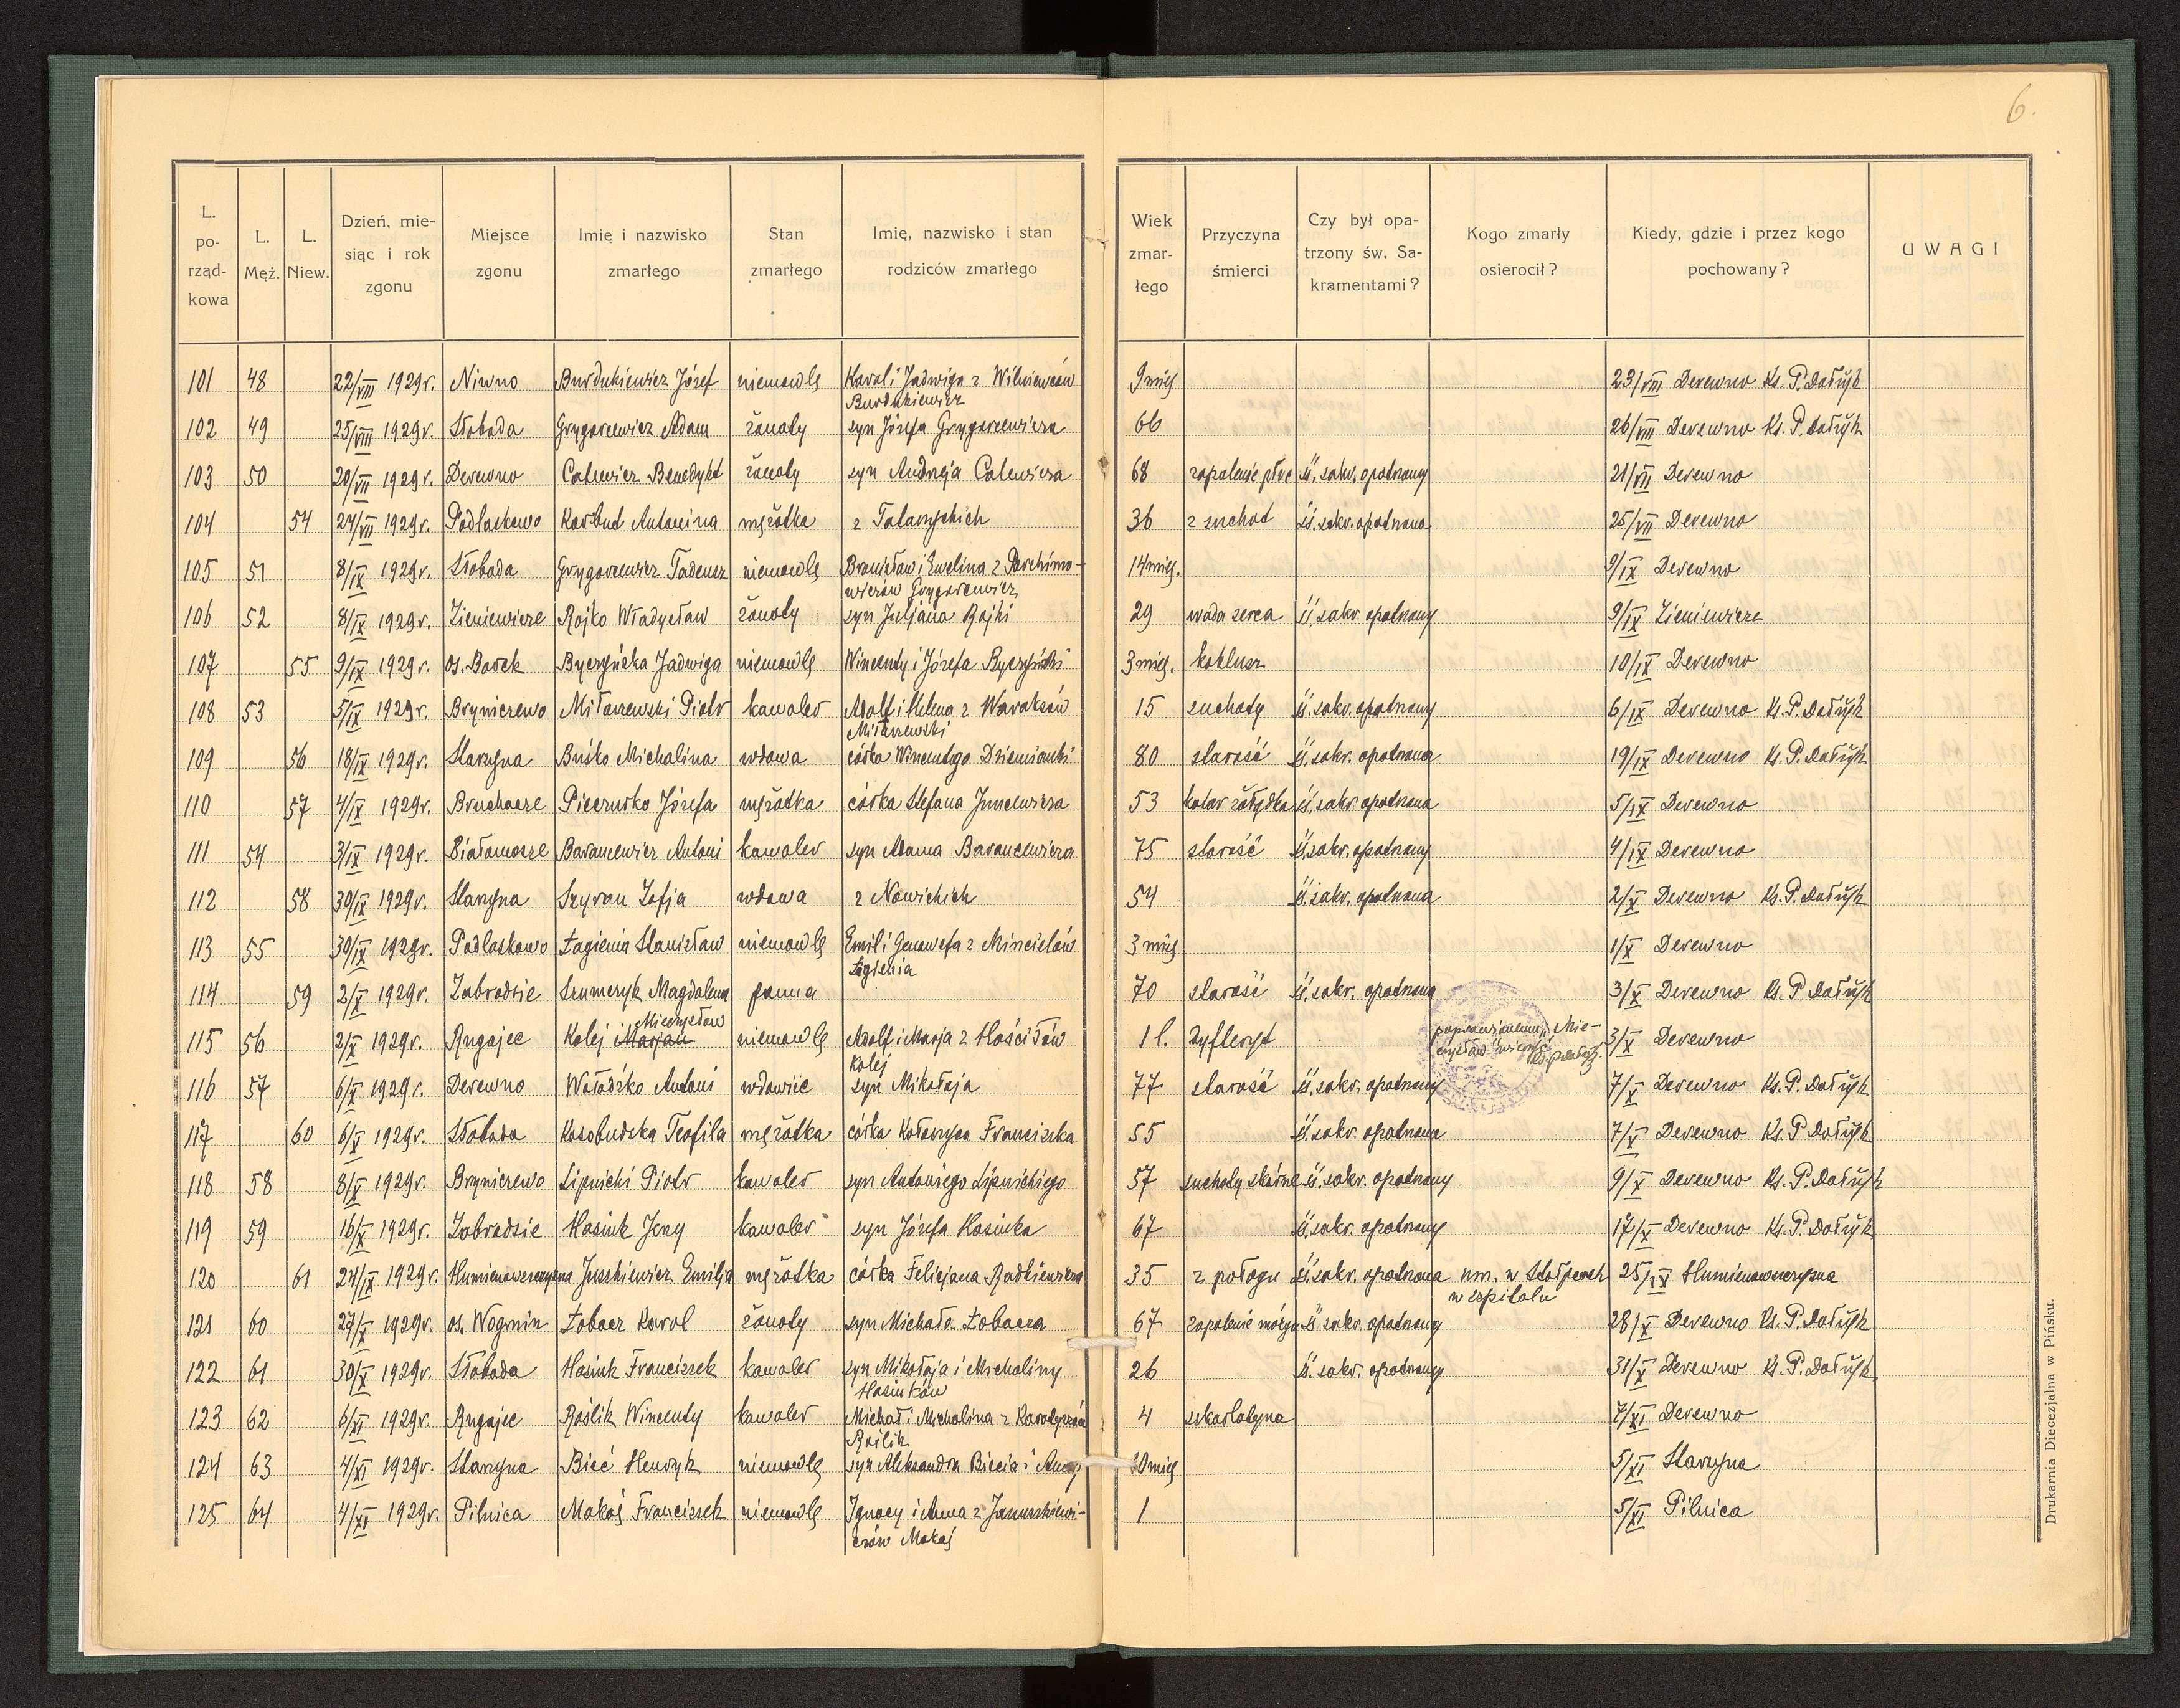 6.
L. po-rząd-kowa | L. Męż. | L. Niew. | Dzień, mie-siąc i rok zgonu | Miejsce zgonu | Imię i nazwisko zmarłego | Stan zmarłego | Imię, nazwisko i stan rodziców zmarłego | Wiek zmar-łego | Przyczyna śmierci | Czy był opa-trzony św. Sa-kramentami? | Kogo zmarły osierocił? | Kiedy, gdzie i przez kogo pochowany? | UWAGI
101 48 22/VIII 1929r. Niwno Burdukiewicz Józef niemowlę Karol i Jadwiga z Wilniewców 9 mies 23/VIII Derewno Ks. P. Dołżyk
Burdukiewicz
102 49 25/VIII 1929r. Słoboda Grygorcewicz Adam żonaty syn Józefa Grygorcewicza 66 26/VIII Derewno Ks. P. Dołżyk
103 50 20/VII 1929r. Derewno Catewicz Benedykt żonaty syn Andreja Catewicza 68 zapalenie płuc śś. sakr. opatrzony 21/VII Derewno
104 54 24/VII 1929r. Podlaskowo Karbud Antonina mężatka z Tatarzyckich 36 z suchot śś. sakr. opatrzona 25/VII Derewno
105 51 8/IX 1929r. Słoboda Grygorcewicz Tadeusz niemowlę Bronisław i Ewelina z Parchimo- 14 mies. 9/IX Derewno
wiczów Grygorcewicz
106 52 8/IX 1929r. Zieniewicze Rojko Władysław żonaty syn Juljana Rojki 29 wada serca śś. sakr. opatrzony 9/IX Zieniewicze
107 55 9/IX 1929r. os. Borek Byczyńska Jadwiga niemowlę Wincenty i Józefa Byczyński 3 mies. koklusz 10/IX Derewno
108 53 5/IX 1929r. Bryniczewo Mitarzewski Piotr kawaler Adolf i Helena z Waraksów 15 suchoty śś. sakr. opatrzony 6/IX Derewno Ks. P. Dołżyk
Mitarzewski
109 56 18/IX 1929r. Starzyna Buśko Michalina wdowa córka Wincentego Dziemianki 80 starość śś. sakr. opatrzona 19/IX Derewno Ks. P. Dołżyk
110 57 4/IX 1929r. Bruchacze Pieczurko Józefa mężatka córka Stefana Juncewicza 53 katar żołądka śś. sakr. opatrzona 5/IX Derewno
111 54 3/IX 1929r. Białomosze Barancewicz Antoni kawaler syn Adama Barancewicza 75 starość śś. sakr. opatrzony 4/IX Derewno
112 58 30/IX 1929r. Starzyna Szyran Zofja wdowa z Nowickich 54 śś. sakr. opatrzona 2/X Derewno Ks. P. Dołżyk
113 55 30/IX 1929r. Podlaskowo Łagienia Stanisław niemowlę Emil i Genowefa z Mincielów 3 mies 1/X Derewno
Łagienia
114 59 2/X 1929r. Zabrodzie Szumczyk Magdalena panna 70 starość śś. sakr. opatrzona 3/X Derewno Ks. P. Dołżyk
Mieczysław
115 56 2/X 1929r. Rugajec Kolej Marjan niemowlę Adolf i Marja z Hościłów 1 l. dyfteryt poprawionemu „Mie- 3/X Derewno
Kolej czysław" wierzyć Ks. P. Dołżyk.
116 57 6/X 1929r. Derewno Wołodźko Antoni wdowiec syn Mikołaja 77 starość śś. sakr. opatrzony 7/X Derewno Ks. P. Dołżyk
117 60 6/X 1929r. Słoboda Kosobudzka Teofila mężatka córka Kołoczysa Franciszka 55 śś. sakr. opatrzona 7/X Derewno Ks. P. Dołżyk
118 58 8/X 1929r. Bryniczewo Lipnicki Piotr kawaler syn Antoniego Lipnickiego 57 suchoty skórne śś. sakr. opatrzony 9/X Derewno Ks. P. Dołżyk
119 59 16/X 1929r. Zabrodzie Hasiuk Jerzy kawaler syn Józefa Hasiuka 67 śś. sakr. opatrzony 17/X Derewno Ks. P. Dołżyk
120 61 24/IX 1929r. Juszkiewicz Emilja mężatka córka Felicjana Radkiewicza 35 z połogu śś. sakr. opatrzona um. w Stołpcach 25/IX
w szpitalu
121 60 27/X 1929r. os. Wogmin Łobacz Karol żonaty syn Michała Łobacza 67 zapalenie mózgu śś. sakr. opatrzony 28/X Derewno Ks. P. Dołżyk
122 61 30/X 1929r. Słoboda Hasiuk Franciszek kawaler syn Mikołaja i Michaliny 26 śś. sakr. opatrzony 31/X Derewno Ks. P. Dołżyk
Hasiuków
123 62 6/XI 1929r. Rugajec Roślik Wincenty kawaler Michał i Michalina z 4 szkarlatyna 7/XI Derewno
Roślik
124 63 4/XI 1929r. Starzyna Bieć Henryk niemowlę syn Aleksandra Biecia i Anny 10 mies 5/XI Starzyna
125 64 4/XI 1929r. Pilnica Makaś Franciszek niemowlę Ignacy i Anna z Januszkiewi- 1 5/XI Pilnica
czów Makaś
Drukarnia Diecezjalna w Pińsku.